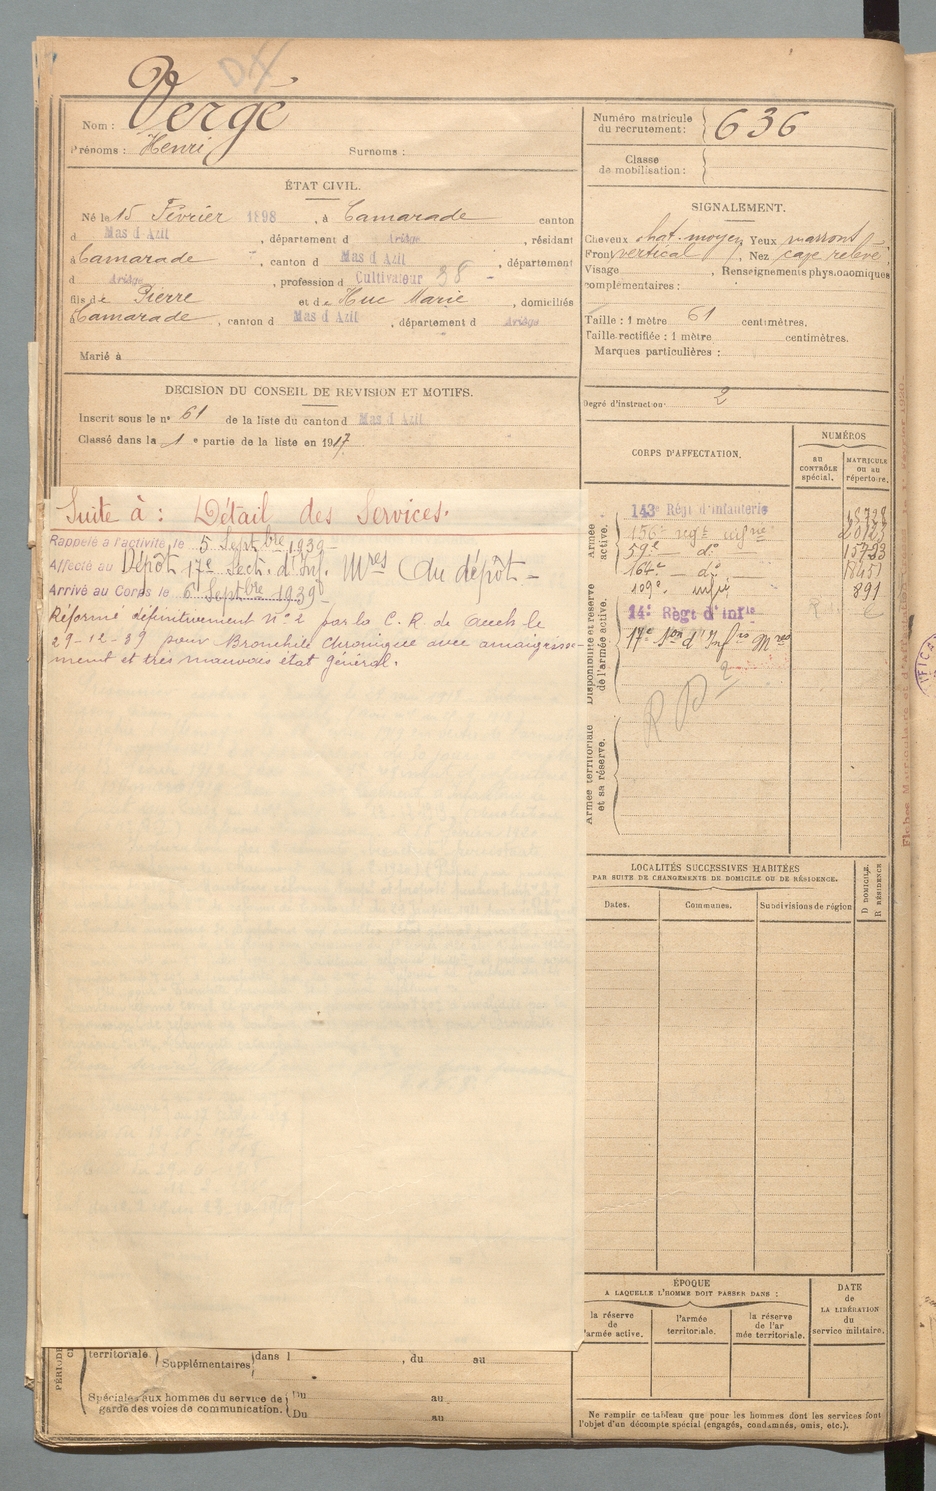 Vergé
Nom :
Prénoms : Henri Surnoms :
ÉTAT CIVIL.
Né le 15 Février 1898, à Camarade canton
d Mas d Azil, département d Ariège, résidant
à Camarade, canton d Mas d Azil, département
d Ariège, profession d Cultivateur 38
fils de Pierre et de Huc Marie, domiciliés
à Camarade, canton d Mas d Azil, département d Ariège
Marié à
DECISION DU CONSEIL DE REVISION ET MOTIFS.
Inscrit sous le n° 61 de la liste du canton d Mas d Azil
Classé dans la 1 e partie de la liste en 1917.
Suite à : Détail des Services.
Rappelé à l'activité le 5 Septbre 1939
Affecté au Dépôt 17e Sect. d'Inf. Mres (du dépôt
Arrivé au Corps le 6 Septbre 1939
Réformé définitivement n° 2 par la C. R. de Auch le
29-12-39 pour Bronchite Chronique avec amaigrisse-
ment et très mauvais état général.
PÉRIODE
territoriale. Supplémentaires dans l , du au
Spéciales aux hommes du service de
garde des voies de communication.
Du au
Du au
Numéro matricule
du recrutement : 636
Classe
de mobilisation :
SIGNALEMENT.
Cheveux chat. moyen Yeux marrons
Front vertical, Nez cave relevé
Visage , Renseignements physionomiques
complémentaires :
Taille : 1 mètre 61 centimètres.
Taille rectifiée : 1 mètre centimètres.
Marques particulières :
Degré d'instruction 2
CORPS D'AFFECTATION.
NUMÉROS
au
CONTRÔLE
spécial.
MATRICULE
ou au
répertoire.
Armée
active.
143e Régt d'infanterie 18728
156e regt infrie 20123
59e — do
164e — do 18451
109e infie 891
Disponibilité et réserve
de l'armée active.
14e Régt d'Infie
17e Son d'Infie Mres
R D 2
Armée territoriale
et sa réserve.
LOCALITÉS SUCCESSIVES HABITÉES
PAR SUITE DE CHANGEMENTS DE DOMICILE OU DE RÉSIDENCE.
Dates.
Communes.
Subdivisions de région
D DOMICILE.
R RÉSIDENCE
ÉPOQUE
A LAQUELLE L'HOMME DOIT PASSER DANS :
la réserve
de
l'armée active.
l'armée
territoriale.
la réserve
de l'ar
mée territoriale.
DATE
de
LA LIBÉRATION
du
service militaire.
Ne remplir ce tableau que pour les hommes dont les services font
l'objet d'un décompte spécial (engagés, condamnés, omis, etc.).